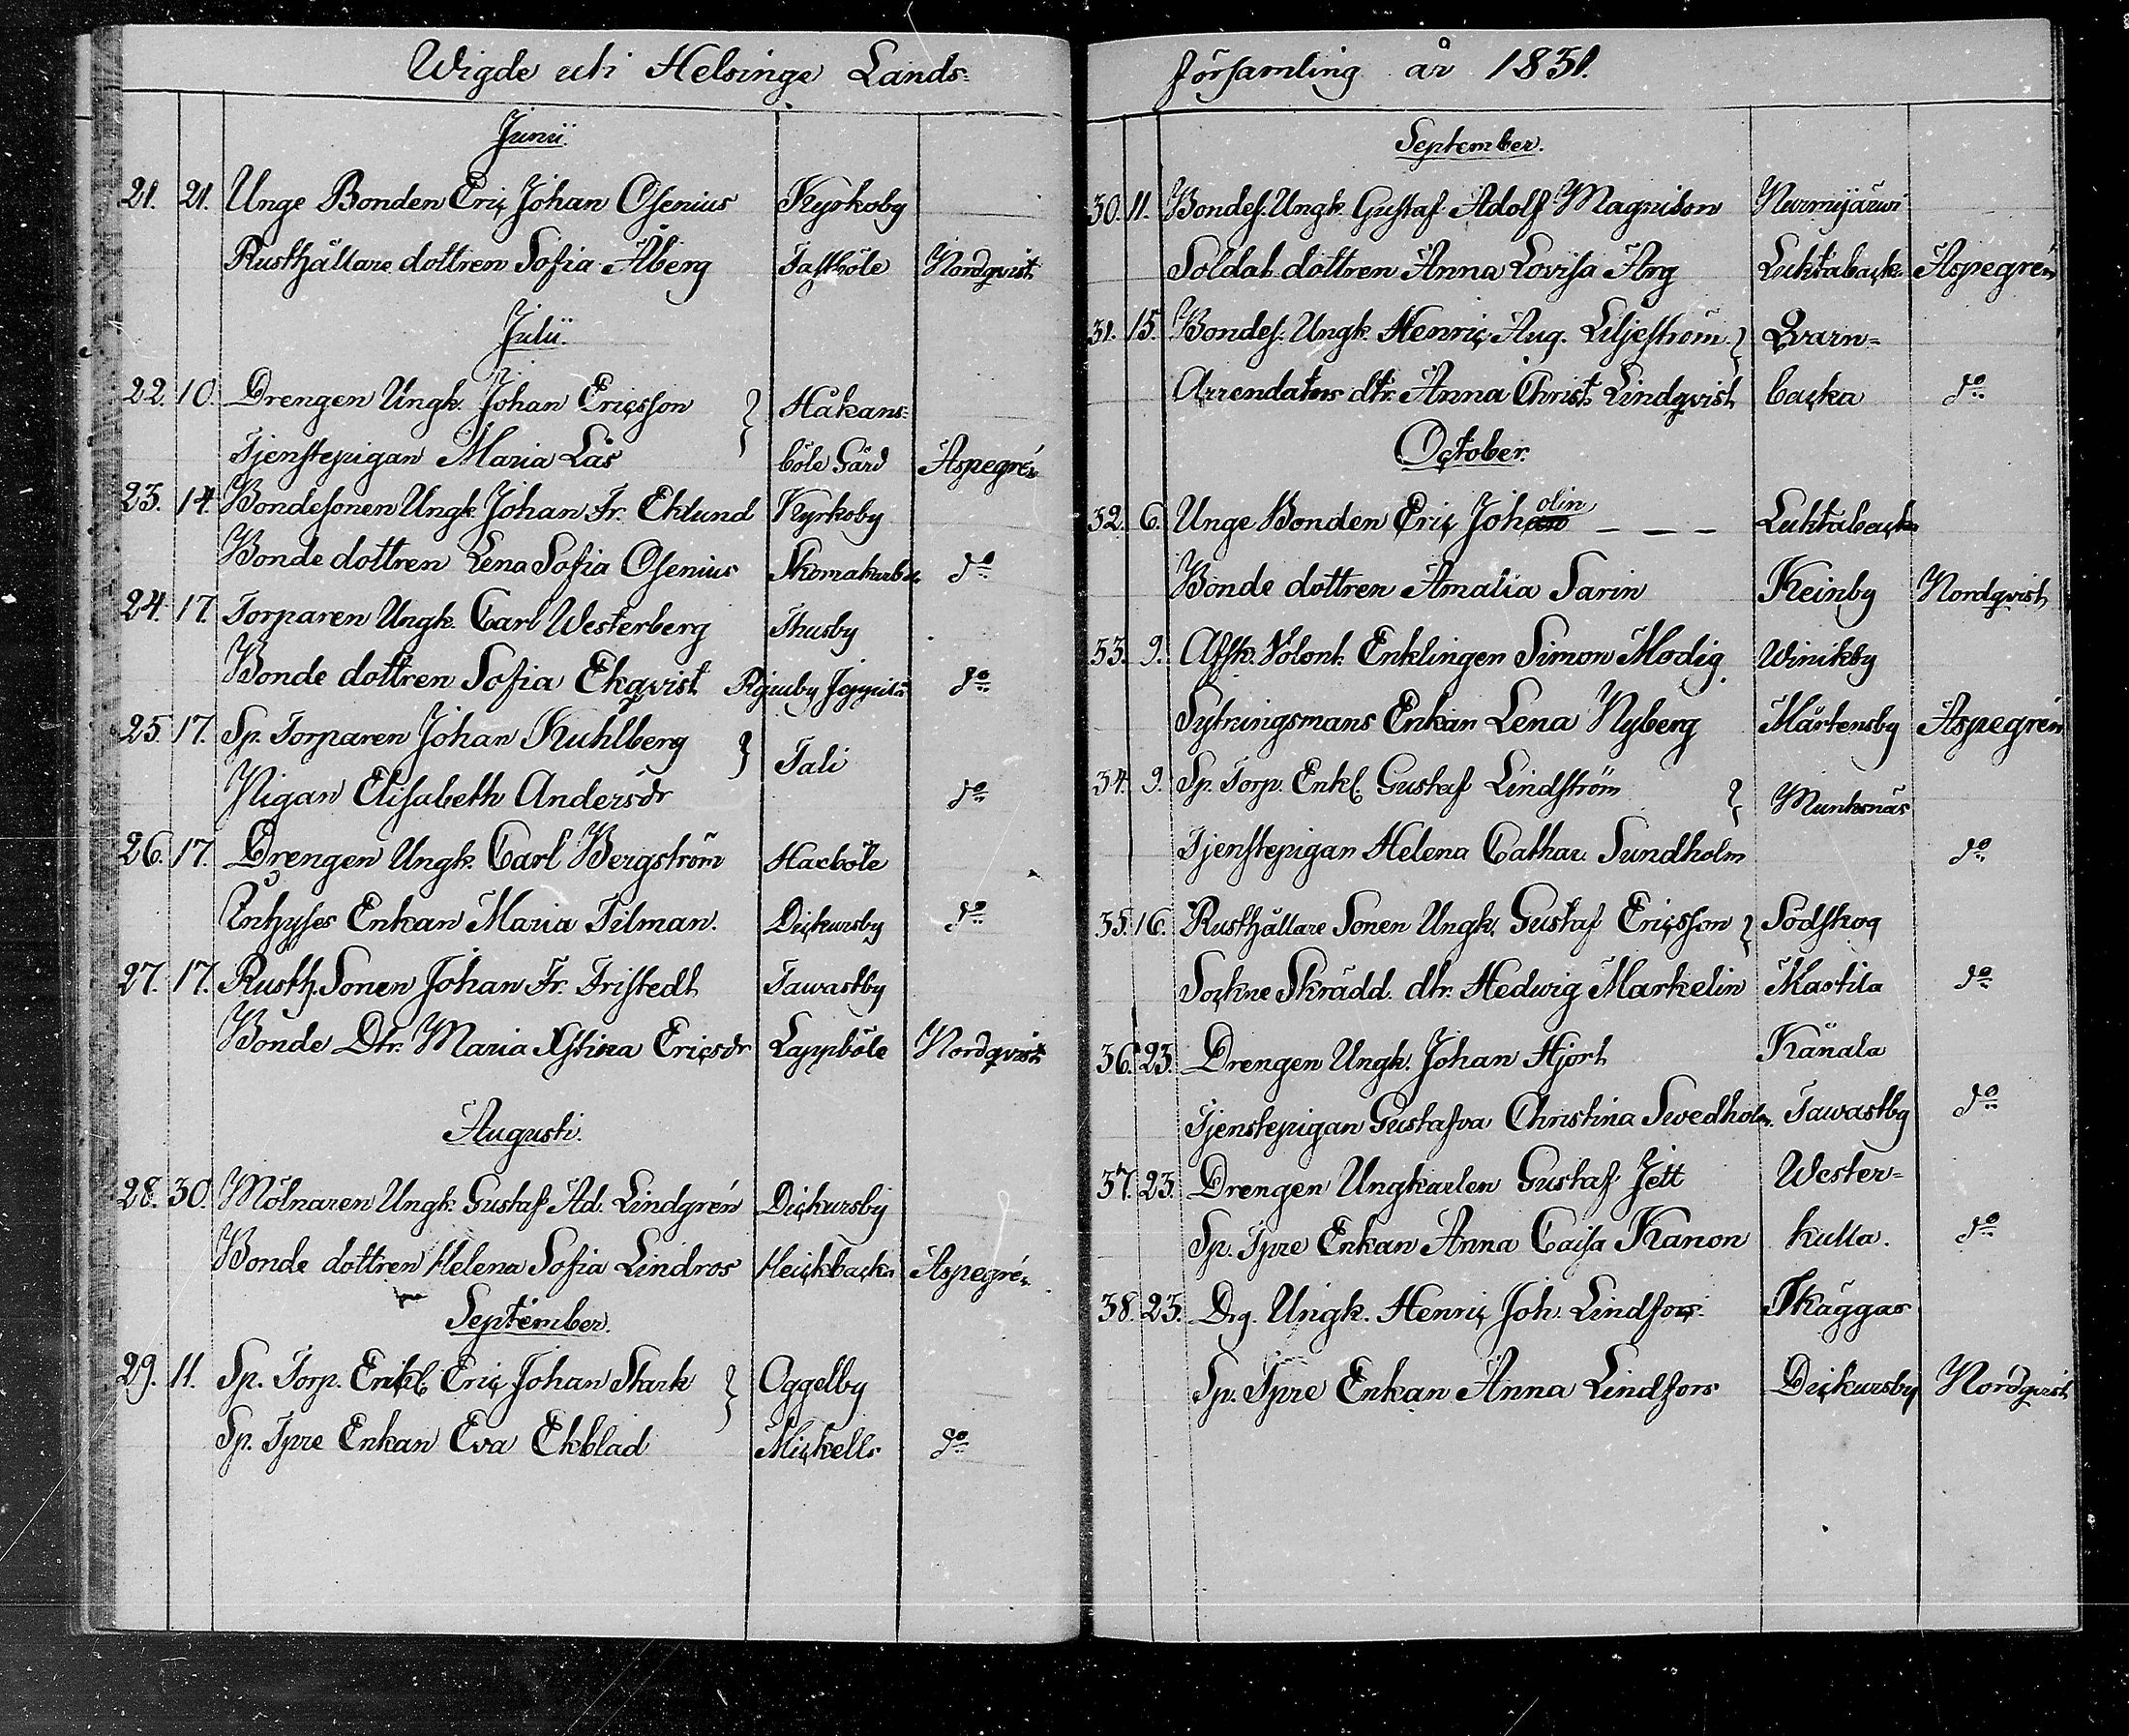 Wigde uti Helsinge Lands=
Junii.
21. 21. Unge Bonden Eric Johan Osenius Kyrkoby
Rusthållare dottren Sofia Åberg Tastböle Nordqvist
Julii.
22. 10. Drengen Ungk. Johan Ericsson } Håkans=
Tjenstepigan Maria Lås böle Gård Aspegrén
23. 14. Bondesonen Ungk. Johan Fr. Eklund Kyrkoby
Bonde dottren Lena Sofia Osenius Skomakarböle do
24. 17. Torparen Ungk. Carl Westerberg Thusby
Bonde dottren Sofia Ekqvist do
25. 17. Sp. Torparen Johan Kuhlberg } Tali
Pigan Elisabeth Andersdr do
26. 17. Drengen Ungk. Carl Bergström Hacböle
Inhyses Enkan Maria Tilman. Dickursby do
27. 17. Rusth. Sonen Johan Fr. Fristedt Tawastby
Bonde Dtr. Maria Xstina Ericsdr Lappböle Nordqvist
Augusti.
28. 30. Mölnaren Ungk. Gustaf Ad. Lindgrén Dickursby
Bonde dottren Helena Sofia Lindros Heickbacka Aspegrén
September.
29. 11. Sp. Torp. Enkl. Eric Johan Stark } Oggelby
Sp. Tpre Enkan Eva Ekblad Mickells do
församling år 1831.
September.
30. 11. Bondes. Ungk. Gustaf Adolf Magnison Nurmijärwi
Soldat dottren Anna Lovisa Arg Luktabacka Aspegrén
31. 15. Bondes. Ungk. Henric Aug. Liljeström } Qvarn=
Arrendators dtr. Anna Christ. Lindqvist backa do
October.
32. 6. Unge Bonden Eric Joholin — — — Luktabacka
Bonde dottren Amalia Sarin Keinby Nordqvist
33. 9. Afsk. Volont. Enklingen Simon Modig Winikby
Sytningsmans Enkan Lena Nyberg Mårtensby Aspegrén
34. 9. Sp. Torp. Enkl. Gustaf Lindström } Munksnäs
Tjenstepigan Helena Cathar. Sundholm do
35. 16. Rusthållare Sonen Ungk. Gustaf Ericsson } Sodskog
Sockne Skrädd. dtr. Hedwig Markelin Mårtila do
36. 23. Drengen Ungk. Johan Hjort Kånala
Tjenstepigan Gustafva Christina Swedholm. Tawastby do
37. 23. Drengen Ungkarlen Gustaf Jett Wester=
Sp. Tpre Enkan Anna Caisa Kanon kulla. do
38. 23. Drg. Ungk. Henric Joh. Lindfors. Skäggas
Sp. Tpre Enkan Anna Lindfors Dickursby Nordqvist